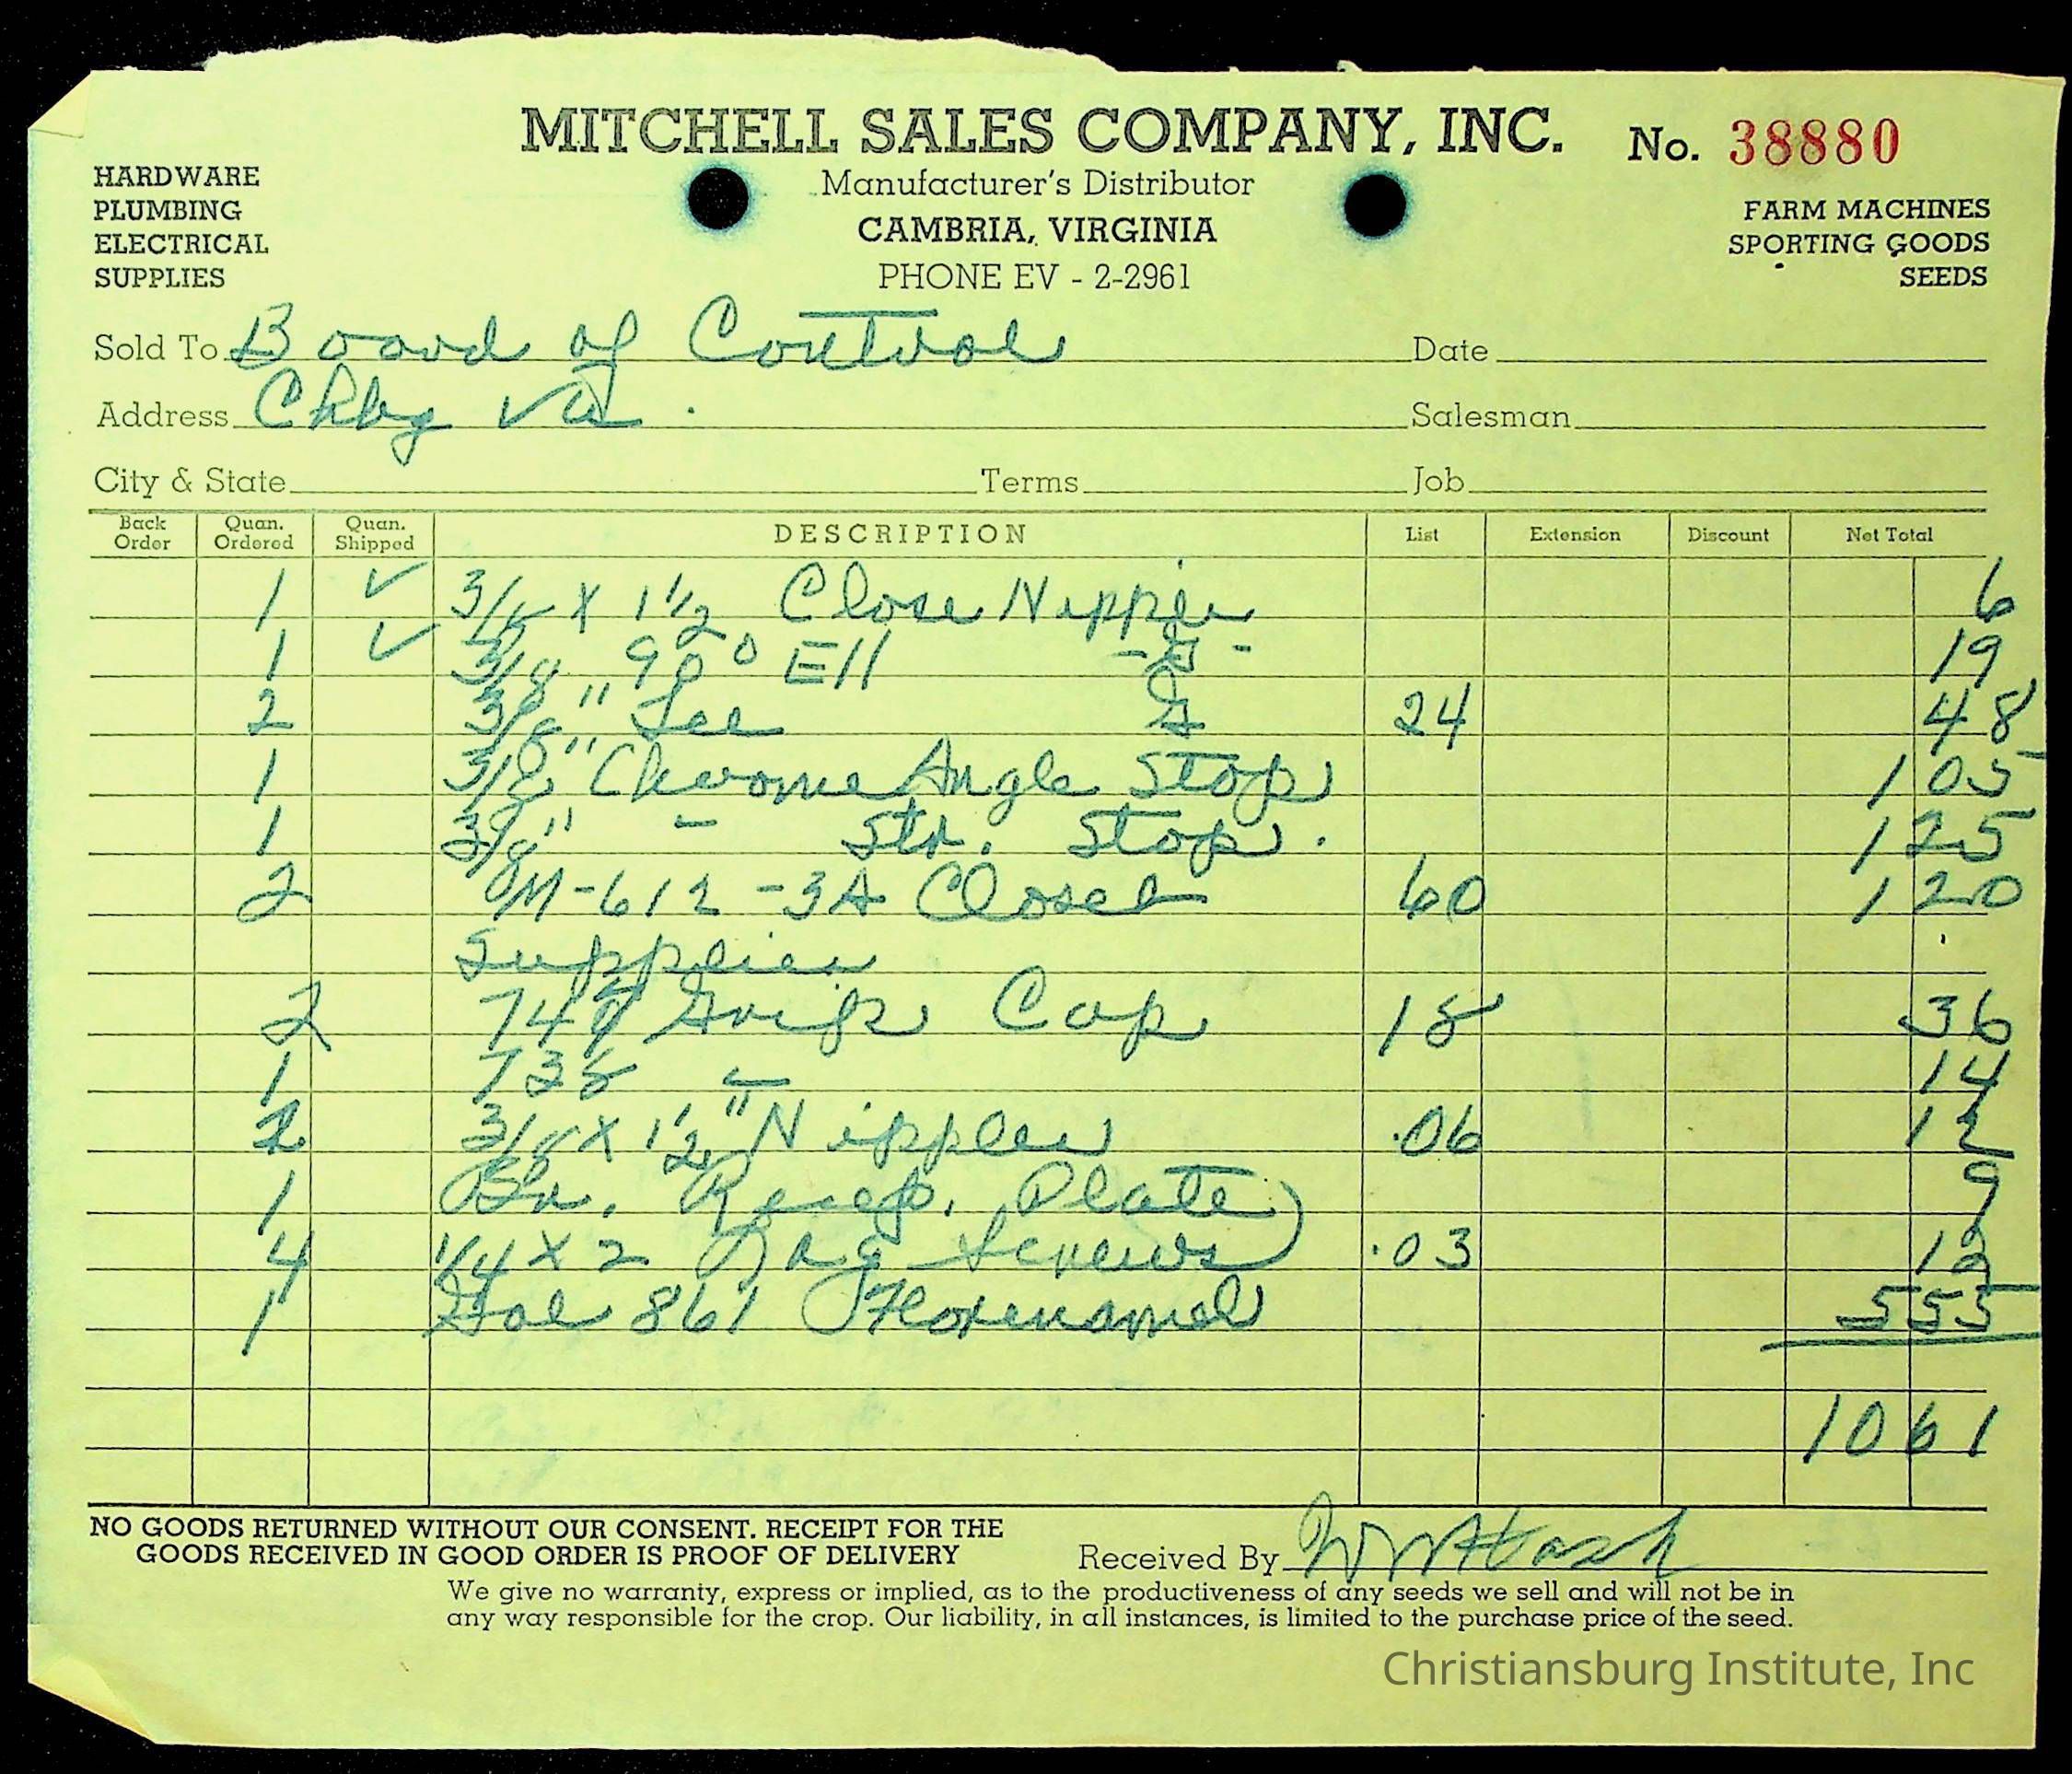 MITCHELL SALES COMPANY, INC.
No. 38880
HARDWARE
PLUMBING
ELECTRICAL
SUPPLIES
Manufacturer's Distributor
CAMBRIA, VIRGINIA
PHONE EV - 2-2961
FARM MACHINES
SPORTING GOODS
SEEDS
Sold To Board of Control Date
Address Chbg Va. Salesman
City & State Terms Job
Back Order Quan. Ordered Quan. Shipped DESCRIPTION List Extension Discount Net Total
1 ✓ 3/8 X 1 1/2 Close Nipple 6
1 ✓ 3/8 90° Ell - G - 19
2 3/8" Tee G 24 48
1 3/8" Chrome Angle Stop 1 05
1 3/8" - Str. Stop. 1 25
2 M-612-3A Closet 60 1 20
Supplies
2 Grip Cap 18 36
1 738 " 14
2 3/8 X 1 1/2" Nipples .06 12
1 Br. Recep. Plate 9
4 1/4 X 2 Lag Screws .03 12
1 Gal 861 Florenamel 5 55
10 61
NO GOODS RETURNED WITHOUT OUR CONSENT. RECEIPT FOR THE
GOODS RECEIVED IN GOOD ORDER IS PROOF OF DELIVERY
Received By
We give no warranty, express or implied, as to the productiveness of any seeds we sell and will not be in
any way responsible for the crop. Our liability, in all instances, is limited to the purchase price of the seed.
Christiansburg Institute, Inc